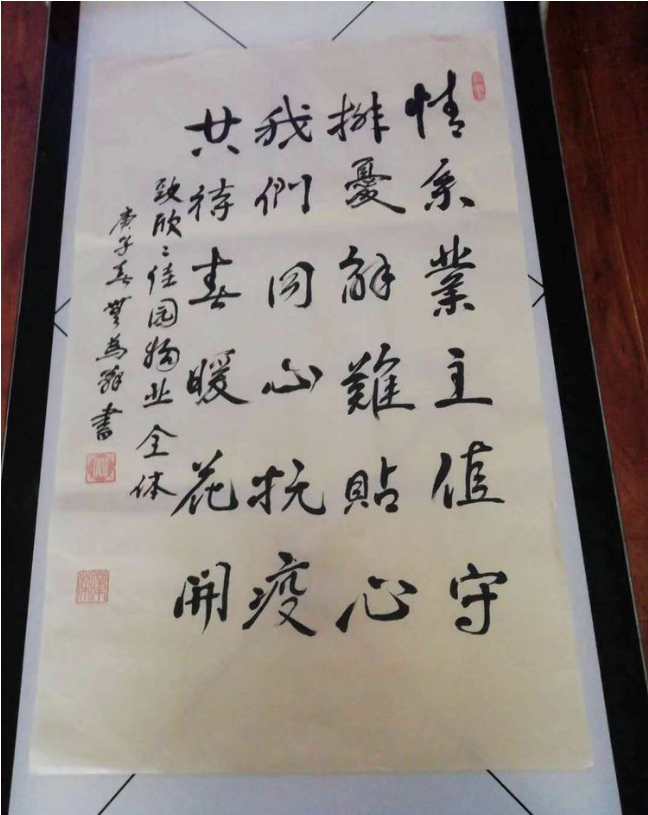 情系業主值守
排憂解難貼心
我們同心抗疫
共待春暖花開
致欣〻佳园物业全体
庚子春 書